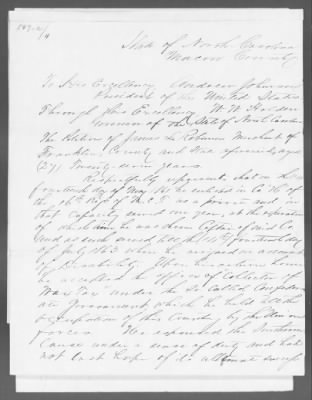 State of North Carolina
Macon County
To His Excellency Andrew Johnson
President of the United States
Through His Excellency W W Holden
Governor of the State of North Carolina
The Petition of James Robinson Merchant of
Franklin, County and State aforesaid, aged
(27) Twenty seven years
Respectfully represents that on the
fourteenth day of May he enlisted in Co H of
the 16th Regt of N.C.T. as a private and in
that Capacity served one year, at the expiration
of which time he was chosen Captain of said Co
and as such served till the 14th fourteenth day
of July 186 when he resigned on account
of Disability. Upon his return home
he accepted the office of Collector of
War Tax under the so Called Confederate
Government which he held till the
occupation of this Country by the Union
forces. He espoused the Southern
Cause under a sense of duty and had
not lost hope of its ultimate success